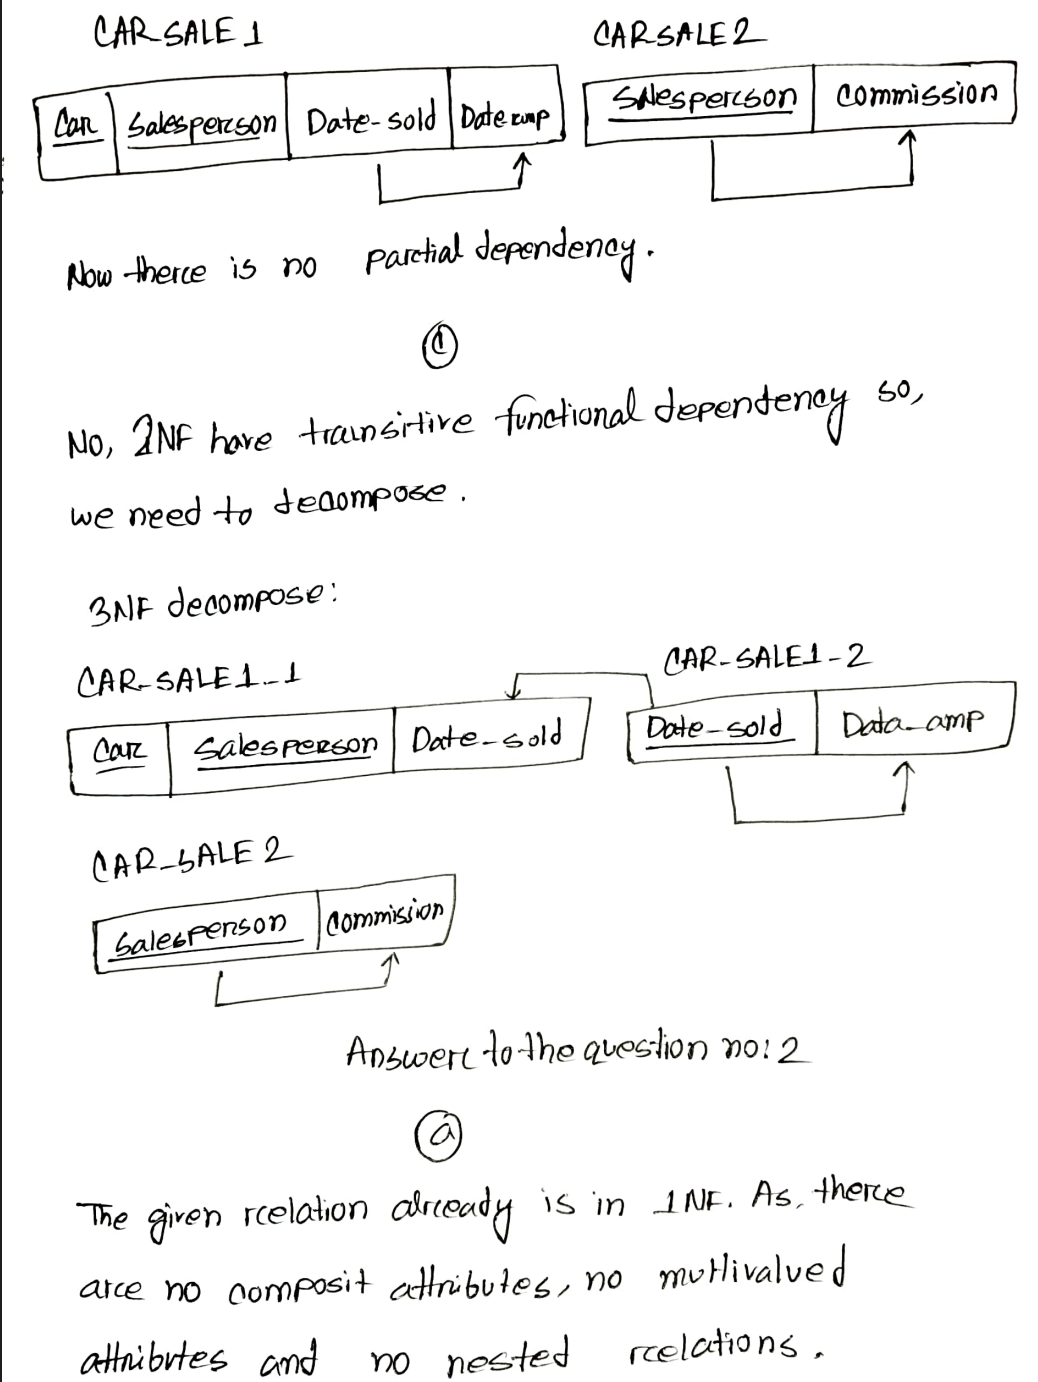 CAR-SALE 1 CARSALE 2
Car Salesperson Date-sold Date amp Salesperson Commission
Now there is no partial dependency.
c
No, 2NF have transitive functional dependency so,
we need to decompose.
3NF decompose:
CAR-SALE1-1 CAR-SALE1-2
Car Salesperson Date-sold Date-sold Data-amp
CAR-SALE 2
Salesperson Commision
Answer to the question no: 2
a
The given relation already is in 1NF. As, there
are no composit attributes, no multivalued
attributes and no nested relations.